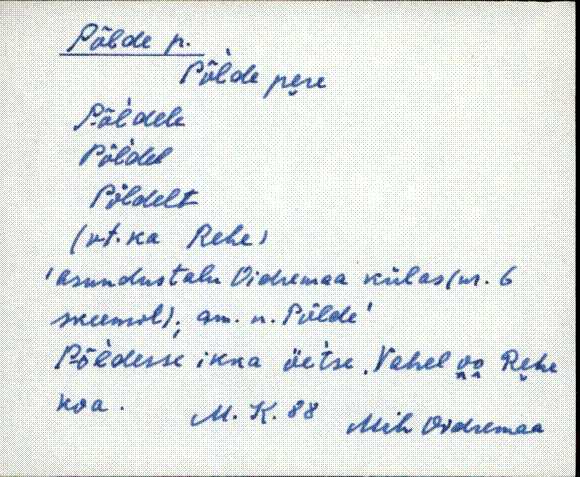 Põlde p.
Põl̀de pere
Põl̀dele
Põl̀del
Põldelt
(vt. ka Rehe)
'asundustalu Oidremaa külas (nr. 6
skeemil); am. n. Põlde'
Põl̀desse ikka öeìtse. Vahel oo Rehe
koa.
M. K. 88
Mih Oidremaa